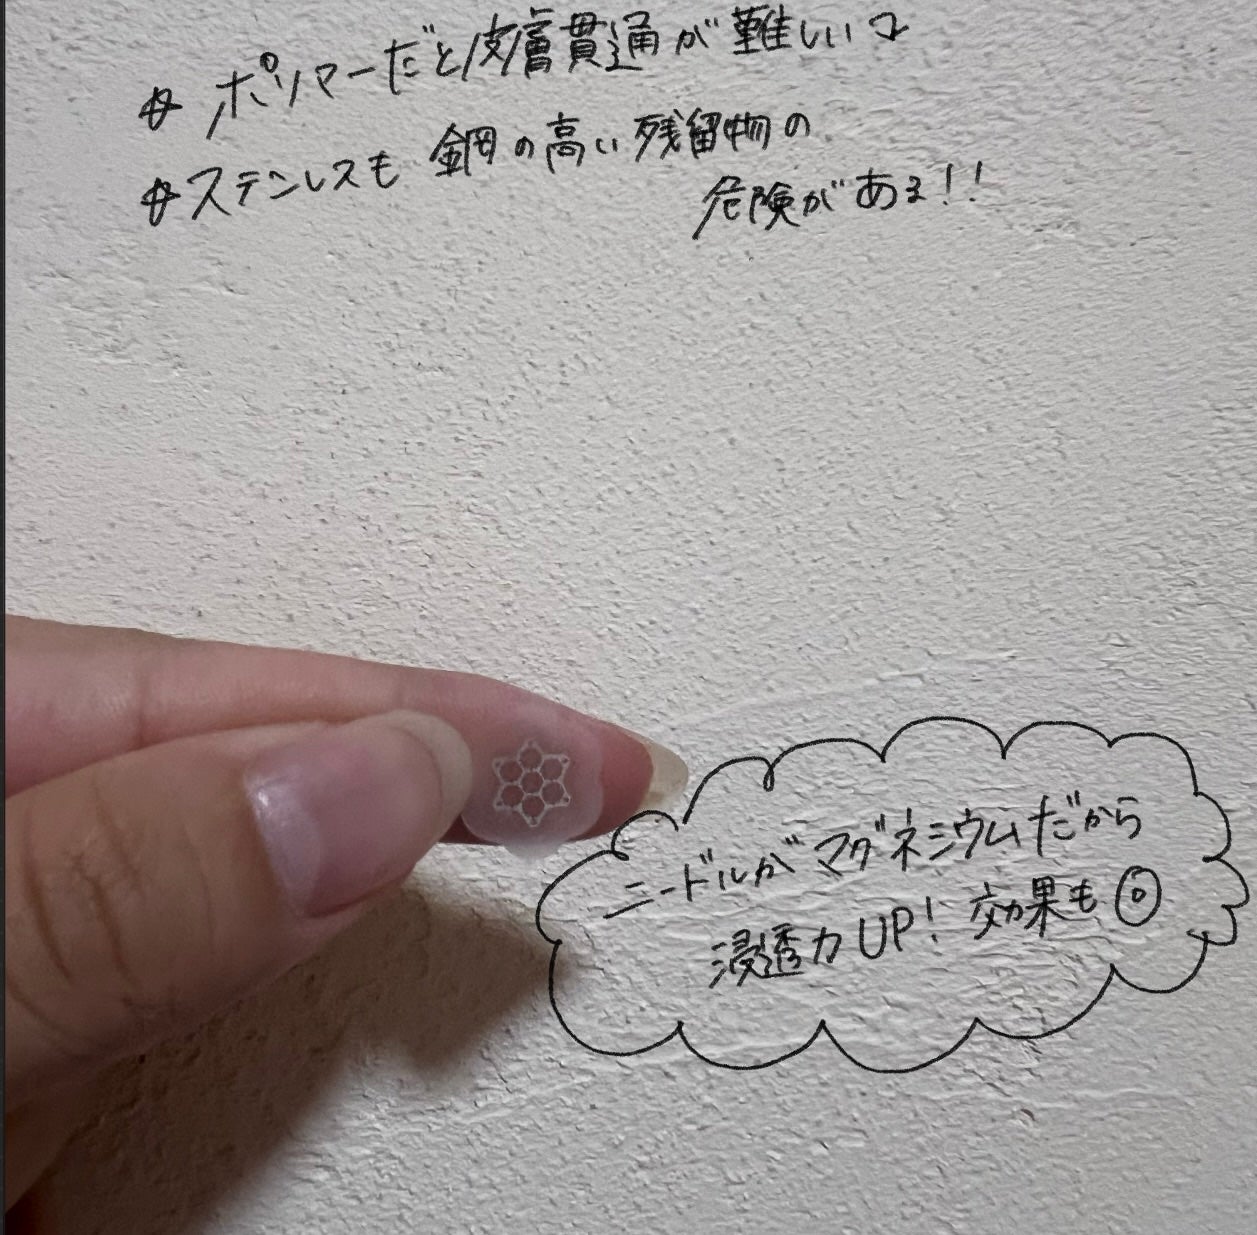 ☆ ポリマーだと皮膚貫通が難しいコ
☆ ステンレスも 鋼の高い残留物の
危険がある!!
ニードルがマグネシウムだから
浸透力UP! 効果も◎